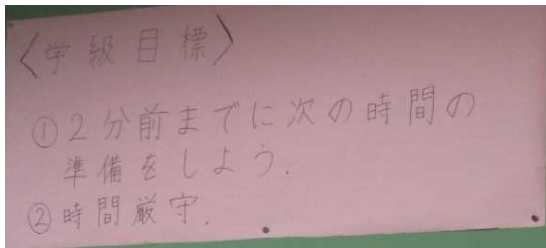 〈学級目標〉
①2分前までに次の時間の
準備をしよう.
②時間厳守.